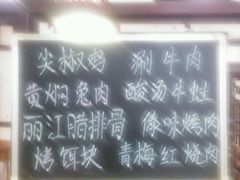 尖椒鸡 涮牛肉
黄焖兔肉 酸汤牛蛙
丽江腊排骨 傣味烤肉
烤饵块 青梅红烧肉